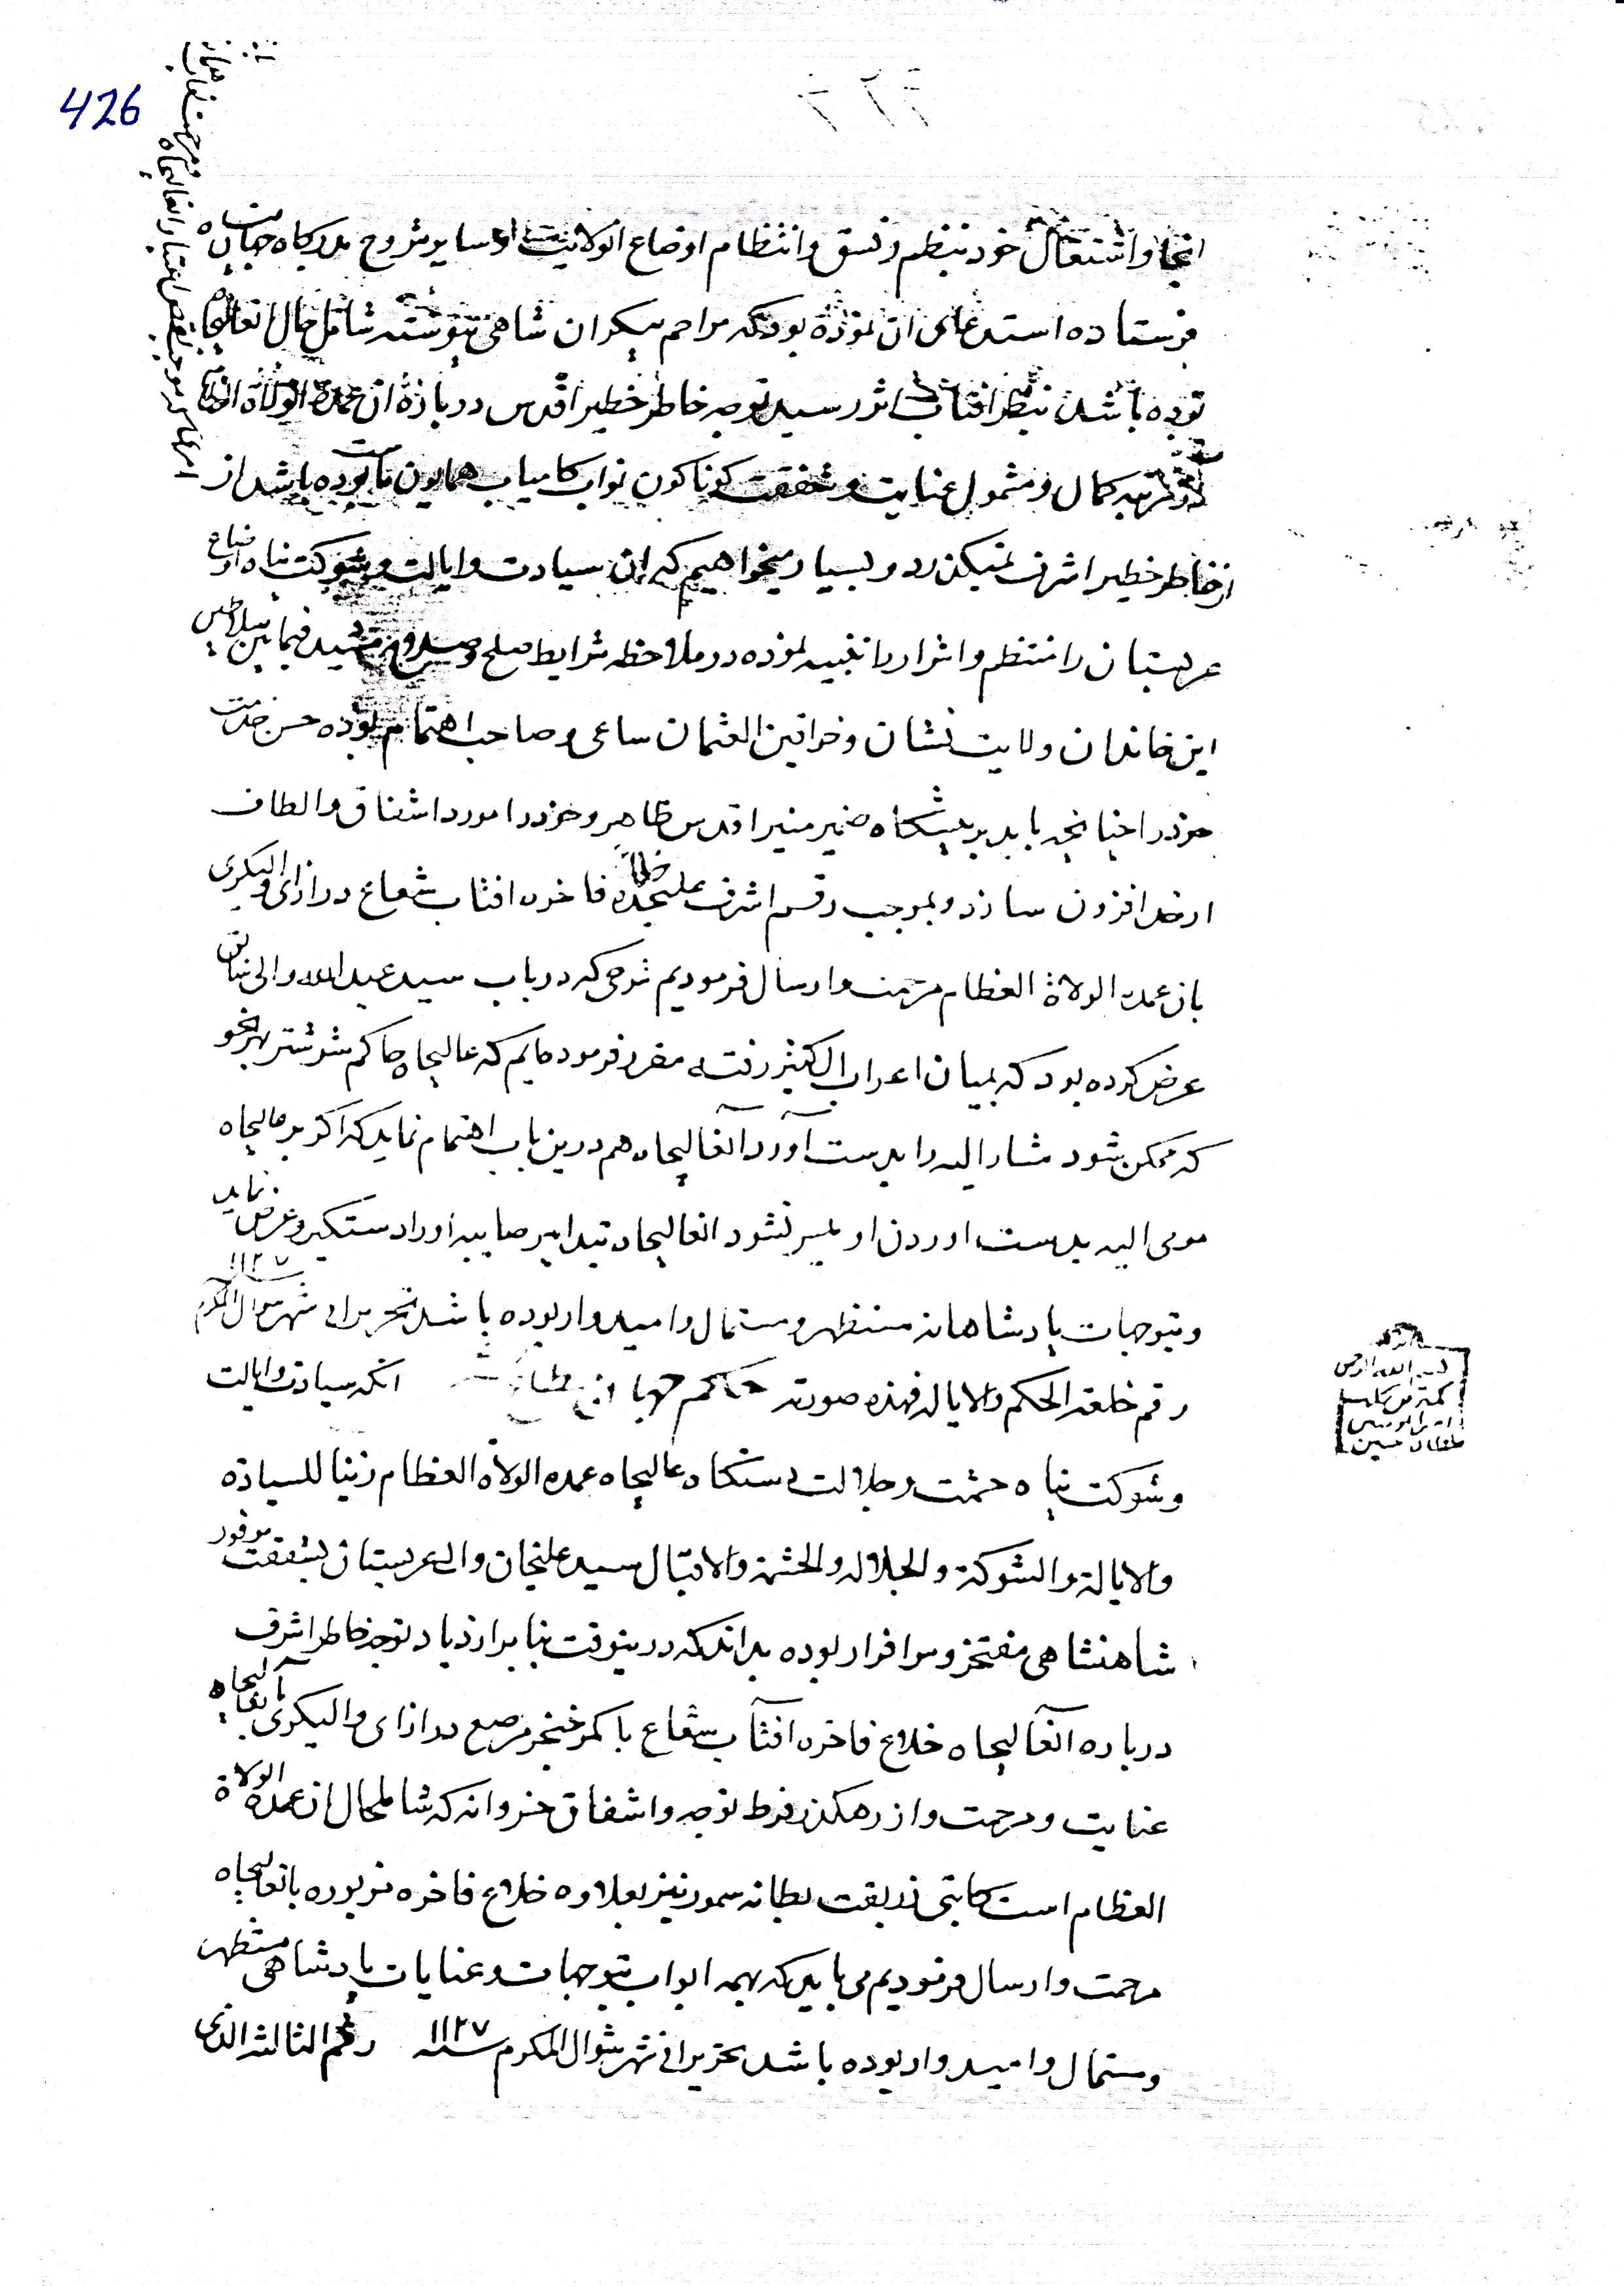 426
انجا و اشتغال خود بنظم و نسق و انتظام اوضاع انولایت و سایر مشروح بدرکاه جهان پناه
فرستاده استدعای ان نموده بود که مراحم بیکران شاهی پیوسته شامل حال انعالیجاه
بوده باشد بنظر افتاب اثر رسید توجه خاطر خطیر اقدس درباره ان عمدة الولاة العظام
مرتبه کمال و مشمول عنایت و شفقت کوناکون نواب کامیاب همایون ما بوده باشد از
از خاطر خطیر اشرف نمیکذرد و بسیار میخواهیم که ان سیادت و ایالت و شوکت پناه اوضاع
عربستان را منتظم و اشرار را تنبیه نموده در ملاحظه شرایط صلح و فیمابین سلاطین
این خاندان ولایت نشان و خواقین العثمان ساعی و صاحب اهتمام بوده حسن خدمت
خود را چنانچه باید بر پیشکاه ضمیر منیر اقدس ظاهر و خود را مورد اشفاق و الطاف
از حد افزون سازد و بموجب رقم اشرف علیحده خلاع فاخره افتاب شعاع در ازای والیکری
بان عمدة الولاة العظام مرحمت و ارسال فرمودیم شرحی که در باب سید عبدالله والی سابق
عرض کرده بود که بمیان اعراب الکثیر رفته مقرر فرموده‌ایم که عالیجاه حاکم شوشتر بهر نحو
که ممکن شود مشار الیه را بدست آورد آنعالیجاه هم درین باب اهتمام نماید که اکر بر عالیجاه
مومی الیه بدست اوردن او میسر نشود انعالیجاه بتدابیر صایبه او را دستکیر و عرض نماید
و بتوجهات پادشاهانه مستظهر و مستمال و امیدوار بوده باشد تحریرا فی شهر شوال المکرم ۱۱۲۷
رقم خلعة الحکم والایاله فهذه صورته حکم جهان مطاع شد انکه سیادت و ایالت
و شوکت پناه حشمت و جلالت دستکاه عالیجاه عمدة الولاة العظام زینا للسیادة
والایالة والشوکة والجلالة والحشمة والاقبال سید علیخان والی عربستان بشفقت موفور
شاهنشاهی مفتخر و سرافراز بوده بداند که درینوقت بنابر ازدیاد توجه خاطر اشرف
درباره آنعالیجاه خلاع فاخره افتاب شعاع با کمر خنجر مرصع در ازای والیکری بانعالیجاه
عنایت و مرحمت و از رهکذر فرط توجه و اشفاق خسروانه که شامل حال ان عمدة الولاة
العظام است کاتبی زربفت بطانه سمور نیز بعلاوه خلاع فاخره مزبوره بانعالیجاه
مرحمت و ارسال فرمودیم می باید که بهمه ابواب بتوجهات و عنایات پادشاهی مستظهر
و مستمال و امیدوار بوده باشد تحریرا فی شهر شوال المکرم سنه ۱۱۲۷ رقم الثالثه الذی